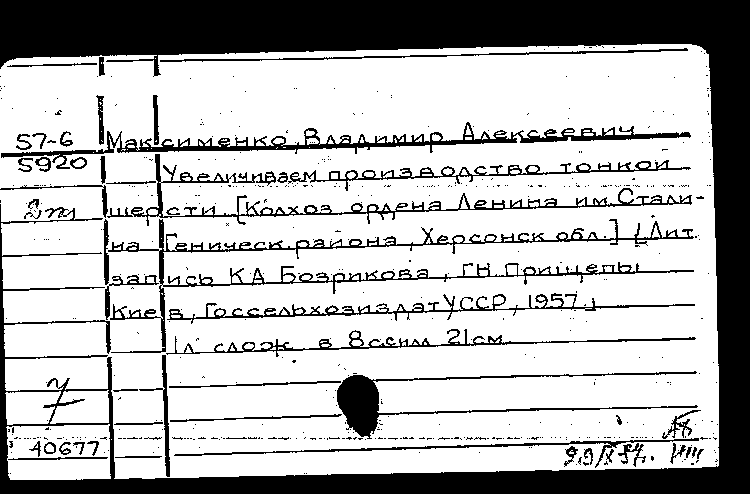 57-6 Максименко, Владимир Алексеевич
5920 Увеличиваем производство тонкой
шерсти. [Колхоз ордена Ленина им. Стали-
на Геническ. района, Херсонск. обл.] [Лит.
запись К.А. Бозрикова, Г.Н. Прищепы
Киев, Госсельхозиздат УССР, 1957.]
1л. слож. в 8 с. с илл. 21см.
7
40677